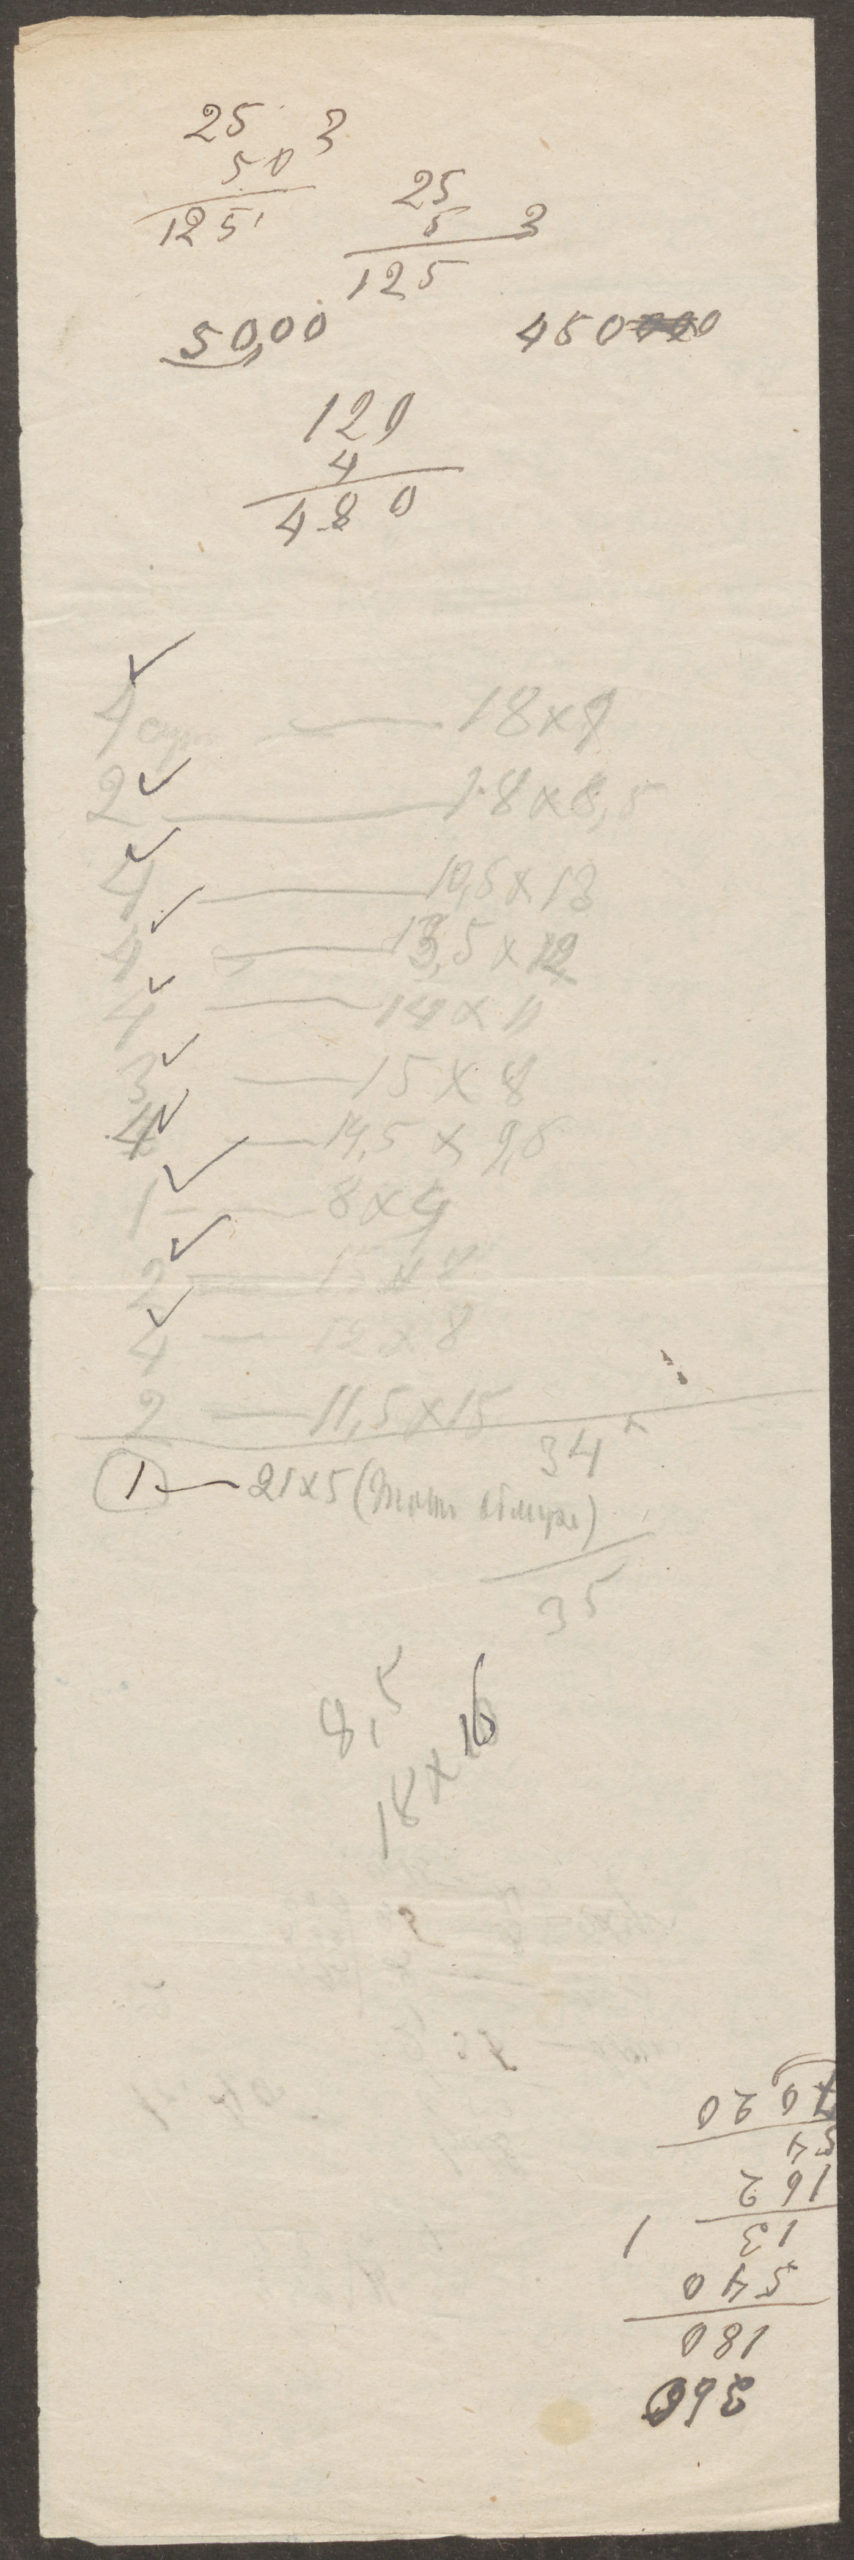 25 3
50
125
25
5 3
125
50,00
450000
120
4
480
4 — 18x9
2 — 18x8,5
4 — 10,5x13
4 — 13,5x12
4 — 14x11
3 — 15x8
4 — 14,5x9,5
1 — 8x9
2 —
4 — 12x8
2 — 11,5x15
34
1 — 21x5
35
8,5
18x16
360
180
540
13 1
162
54
7020